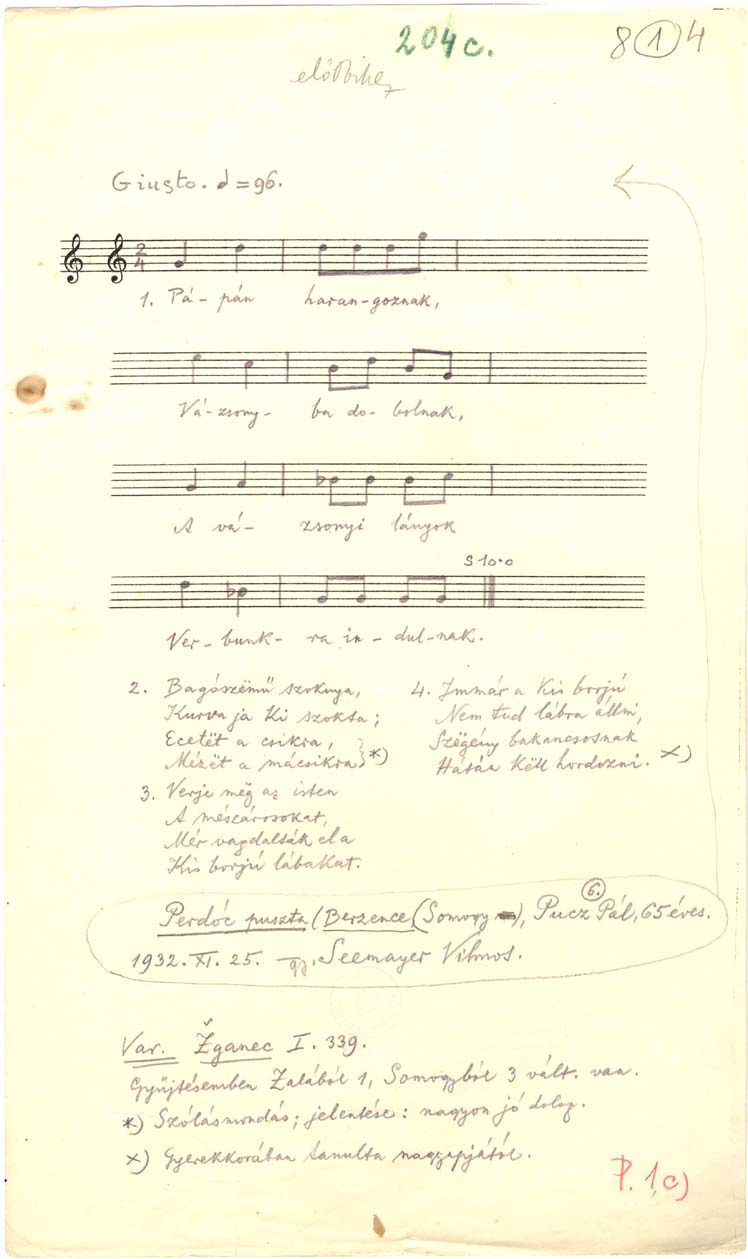 204c.
8 1 4
előbbihez
Giusto. d = 96.
2
4
1. Pá - pán haran - goznak,
Vá - zsony - ba do - bolnak,
A vá - zsonyi lányok
S 10.0
Ver - bunk - ra in - dul - nak.
2. Bagószëmű szoknya,
Kurva ja ki szokta;
Ecetët a csikra,
Mézët a mácsikra } *)
3. Verje mëg az isten
A mészárosokat,
Mér vagdalták el a
Kis borjú lábakat.
4. Immár a kis borjú
Nem tud lábra állni,
Szëgény bakancsosnak
Hátán këll hordozni. x)
6.
Perdóc puszta (Berzence (Somogy), Pucz Pál, 65 éves.
1932. XI. 25. gy. Seemayer Vilmos.
Var. Žganec I. 339.
Gyűjtésemben Zalából 1, Somogyból 3 vált. van.
*) Szólásmondás; jelentése: nagyon jó dolog.
x) Gyerekkorában tanulta nagyapjától.
P. 1,c)